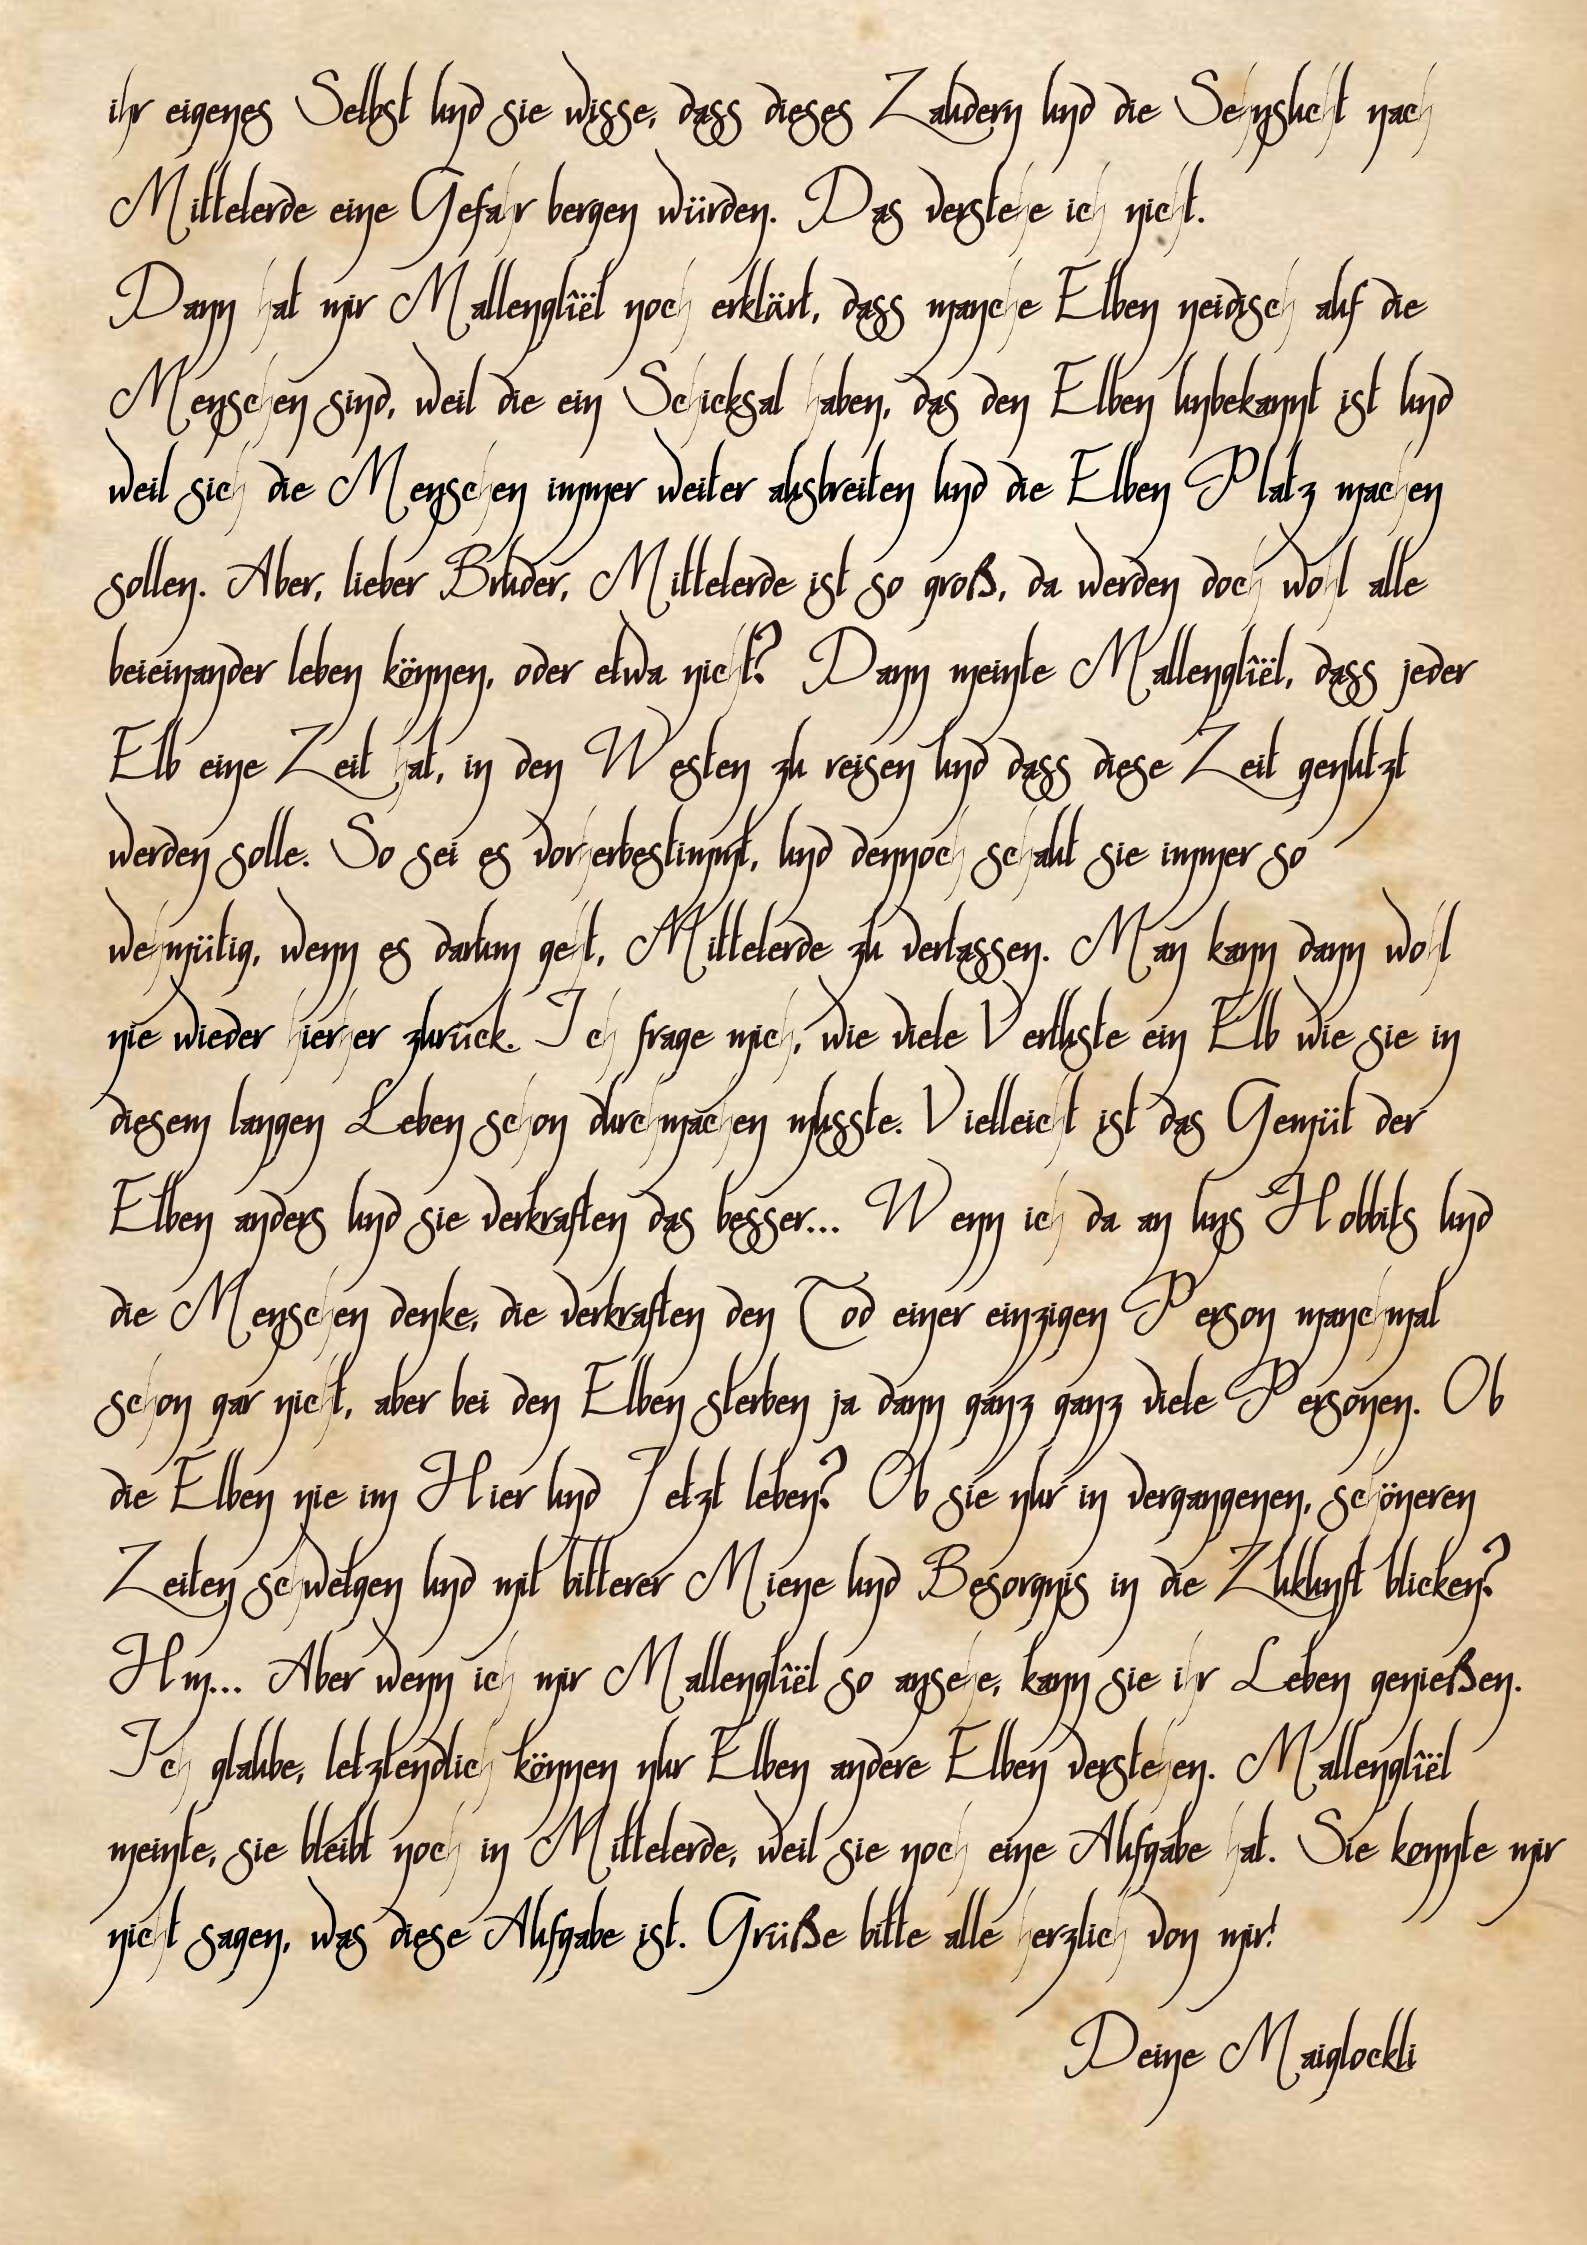 ihr eigenes Selbst und sie wisse, dass dieses Zaudern und die Sehnsucht nach
Mittelerde eine Gefahr bergen würden. Das verstehe ich nicht.
Dann hat mir Mallenglîël noch erklärt, dass manche Elben neidisch auf die
Menschen sind, weil die ein Schicksal haben, das den Elben unbekannt ist und
weil sich die Menschen immer weiter ausbreiten und die Elben Platz machen
sollen. Aber, lieber Bruder, Mittelerde ist so groß, da werden doch wohl alle
beieinander leben können, oder etwa nicht? Dann meinte Mallenglîël, dass jeder
Elb eine Zeit hat, in den Westen zu reisen und dass diese Zeit genutzt
werden solle. So sei es vorherbestimmt, und dennoch schaut sie immer so
wehmütig, wenn es darum geht, Mittelerde zu verlassen. Man kann dann wohl
nie wieder hierher zurück. Ich frage mich, wie viele Verluste ein Elb wie sie in
diesem langen Leben schon durchmachen musste. Vielleicht ist das Gemüt der
Elben anders und sie verkraften das besser... Wenn ich da an uns Hobbits und
die Menschen denke, die verkraften den Tod einer einzigen Person manchmal
schon gar nicht, aber bei den Elben sterben ja dann ganz ganz viele Personen. Ob
die Elben nie im Hier und Jetzt leben? Ob sie nur in vergangenen, schöneren
Zeiten schwelgen und mit bitterer Miene und Besorgnis in die Zukunft blicken?
Hm... Aber wenn ich mir Mallenglîël so ansehe, kann sie ihr Leben genießen.
Ich glaube, letztendlich können nur Elben andere Elben verstehen. Mallenglîël
meinte, sie bleibt noch in Mittelerde, weil sie noch eine Aufgabe hat. Sie konnte mir
nicht sagen, was diese Aufgabe ist. Grüße bitte alle herzlich von mir!
Deine Maiglockli